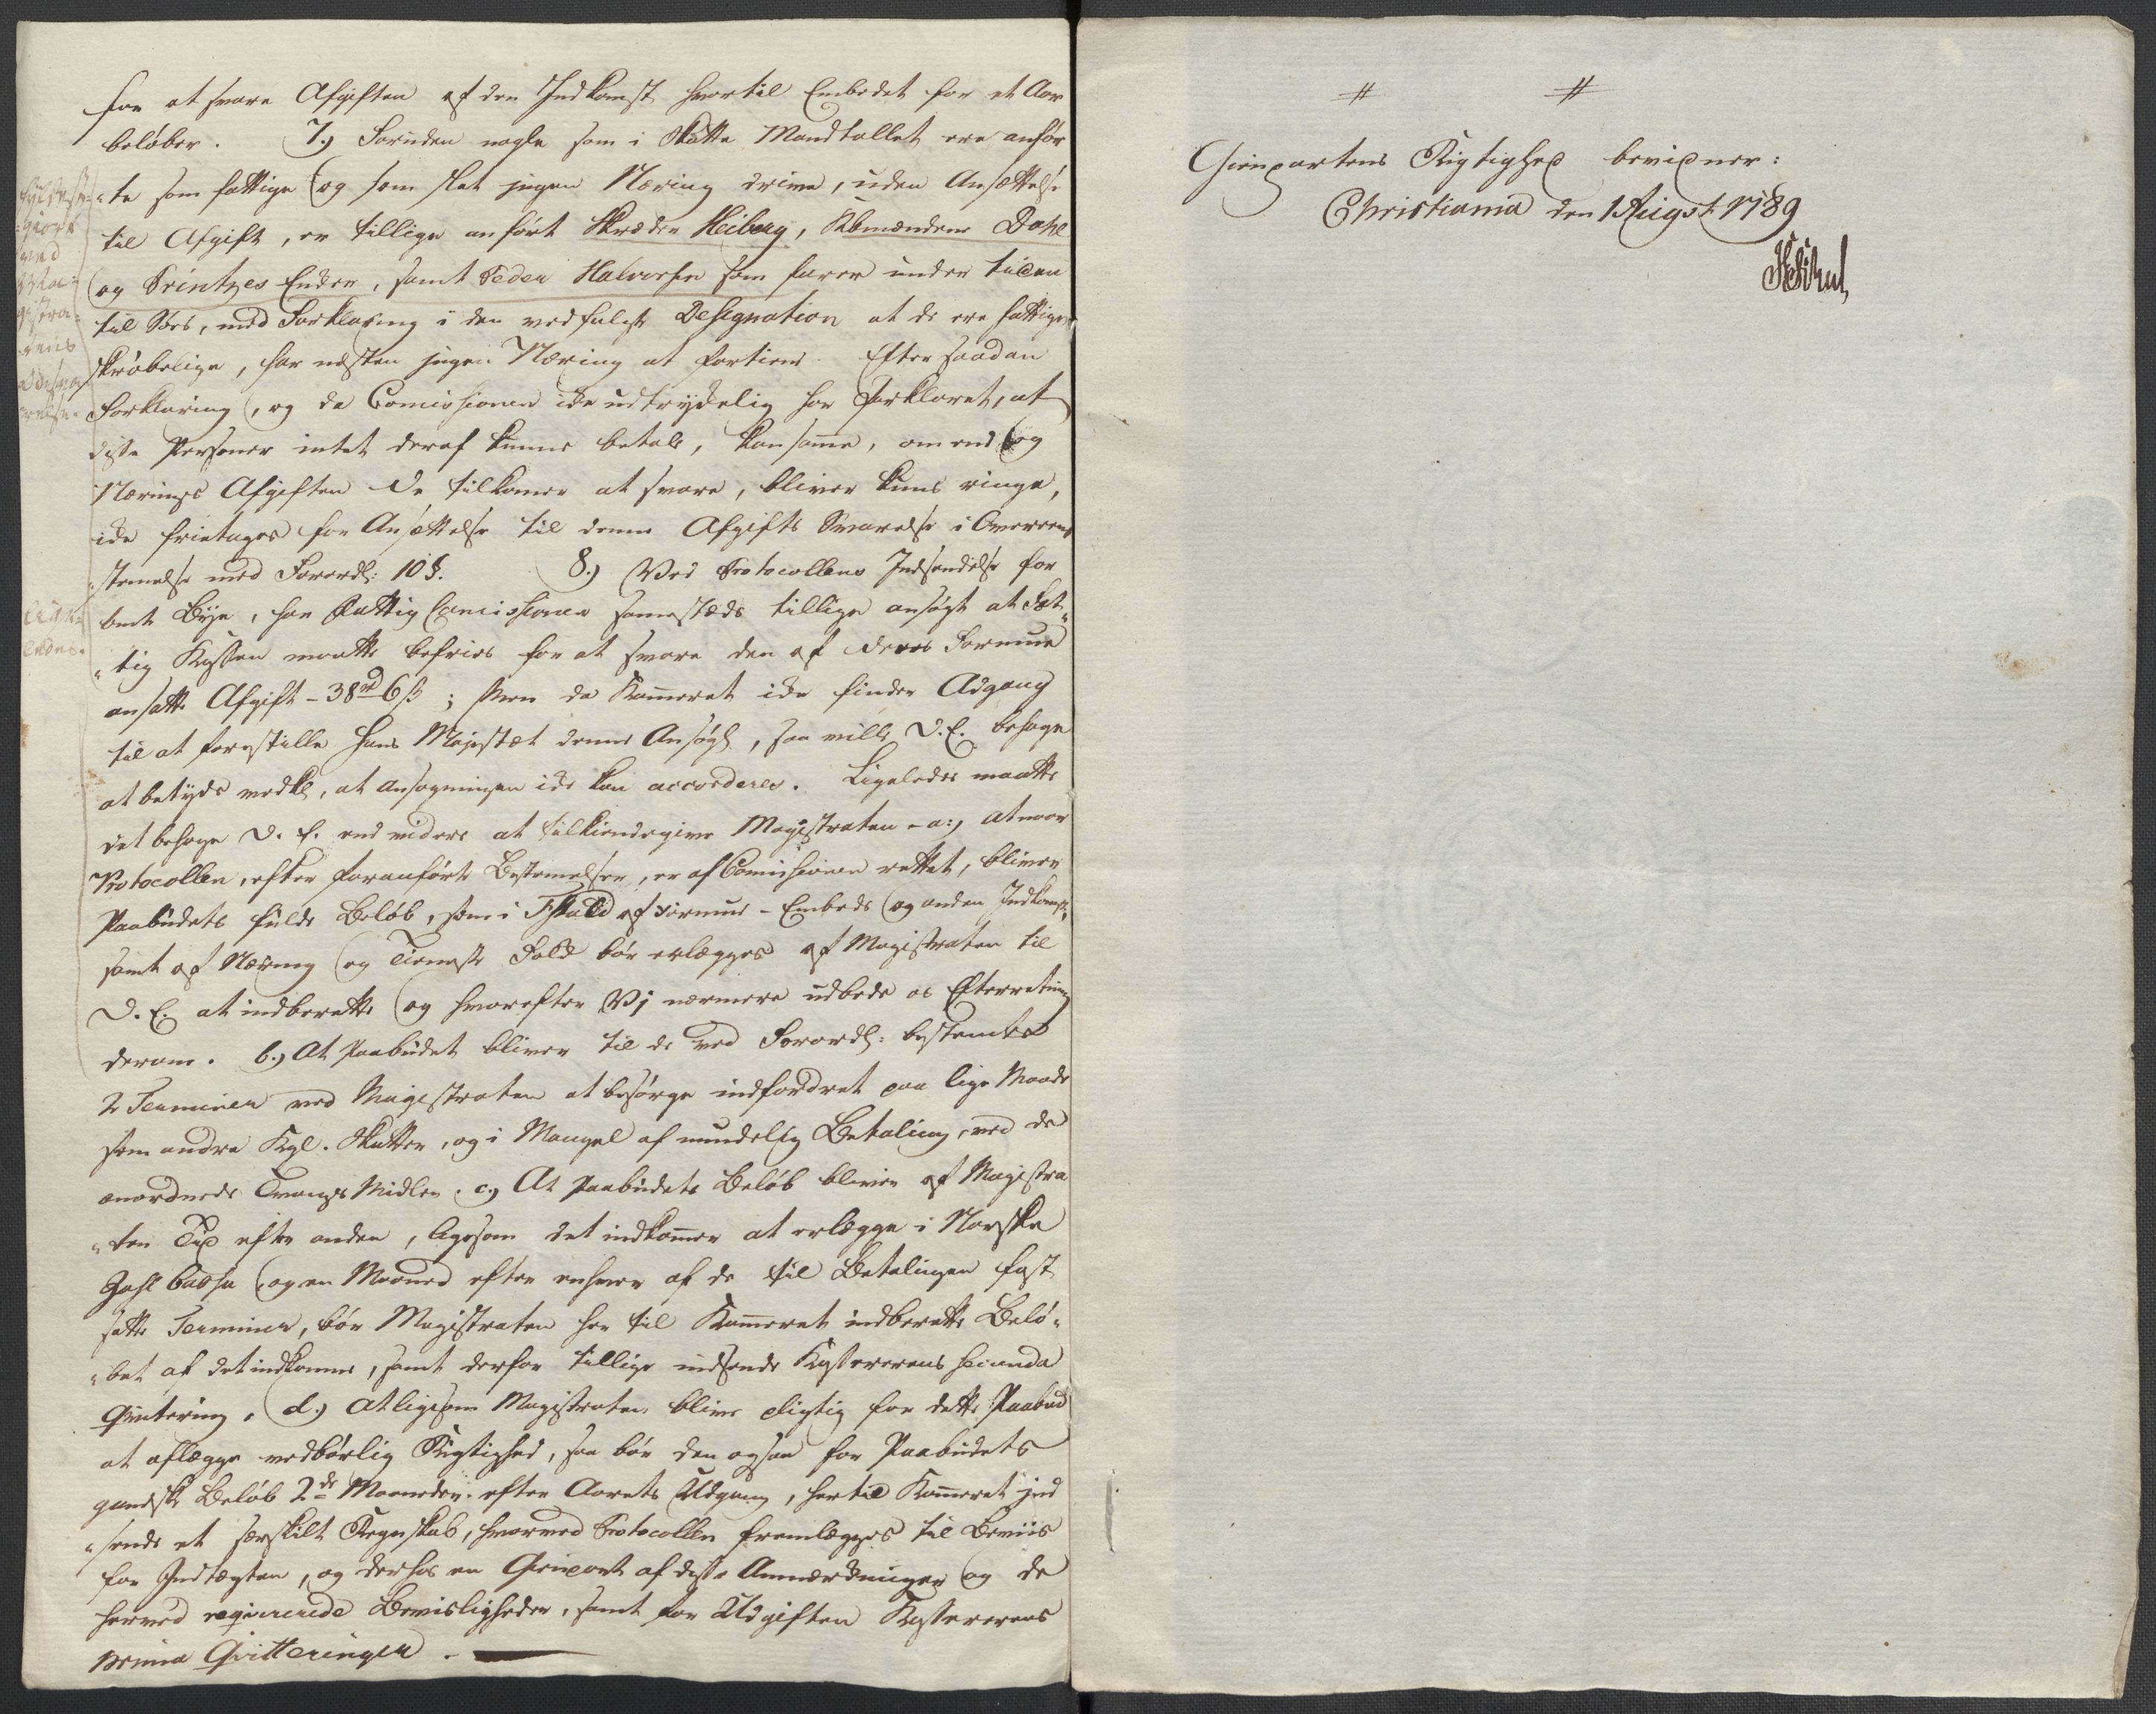 for at svare Afgiften af den Indkomst hvortil Embedet for et Aar
beløber. 7.) Foruden nogle som i Skatte Mandtallet ere anfør
"te som fattige og som slet ingen Næring drive, uden Ansættelse
til Afgift, er tillige anført Skræder Heiberg, Kbmændene Dahl
og Printzes Enker, samt Peder Halvorsen som farer under tiden
til Søes, med Forklaring i den vedfulgte Designation at de ere fattige,
skrøbelige, har næsten ingen Næring at fortiene. Efter saadan
Forklaring, og da Comissionen ikke udtrykkelig har forklaret, at
disse Personer intet deraf kunne betale, kan samme, om end og
Nærings Afgiften de tilkomer at svare, bliver kuns ringe,
ikke fritages for Ansættelse til denne Afgifts Svarelse i Overeens
"stemelse med Forordn: 10 §. 8.) Ved Protocollens Indsendelse for
bemt Bye, har Fattig Comissionen samestæds tillige ansøgt at Fat"
"tig Kassen maatte befries for at svare den af deres Formue
ansatte Afgift - 38 rd 6 ß; Men da Kameret ikke finder Adgang
til at forestille Hans Majestæt denne Ansøgn, saa ville D. E. behage
at betyde vedk, at Ansøgningen ikke kan accorderes. Ligeledes maatte
det behage D. E. end videre at tilkiendegive Magistraten - a:) at naar
Protocollen, efter foranførte Bestemelser, er af Comissionen rettet, bliver
Paabudets fulde Beløb, som i Forhold af Formue - Embeds og anden Indkomst,
samt af Næring og Tieneste Folk bør erlægges af Magistraten til
D. E. at indberette og hvorefter Vi nærmere udbede os Efterretning
derom. b.) At Paabudet bliver til de ved Forordn: bestemte
2 Terminer ved Magistraten at besørge indfordret paa lige Maade
som andre Kgl. Skatter, og i Mangel af mindelig Betaling, ved de
anordnede Tvangs Midler. c.) At Paabudets Beløb bliver af Magistra
"ten Tid efter anden, ligesom det indkomer at erlægge i Norske
Zahl Cassa og en Maaned efter enhver af de til Betalingen fast
satte Terminer, bør Magistraten her til Kameret indberette Belø"
"bet af det indkomne, samt derfor tillige indsende Kassererens secunda
Qvitering. d.) At ligesom Magistraten blive pligtig for dette Paabud
at aflægge vedbørlig Rigtighed, saa bør den ogsaa for Paabudets
gandske Beløb 2de Maaneder efter Aarets Udgang, hertil Kameret ind
"sende et særskilt Regnskab, hvorved Protocollen fremlægges til Beviis
for Indtægten, og derhos en Gienpart af disse Anmærkninger og de
herved reqvirerede Bevisligheder, samt for Udgiften Kassererens
prima Qvitteringer.
ved
Magistra"
tens
# #
Gienpartens Rigtighed bevidner:
Christiania den 1 August 1789